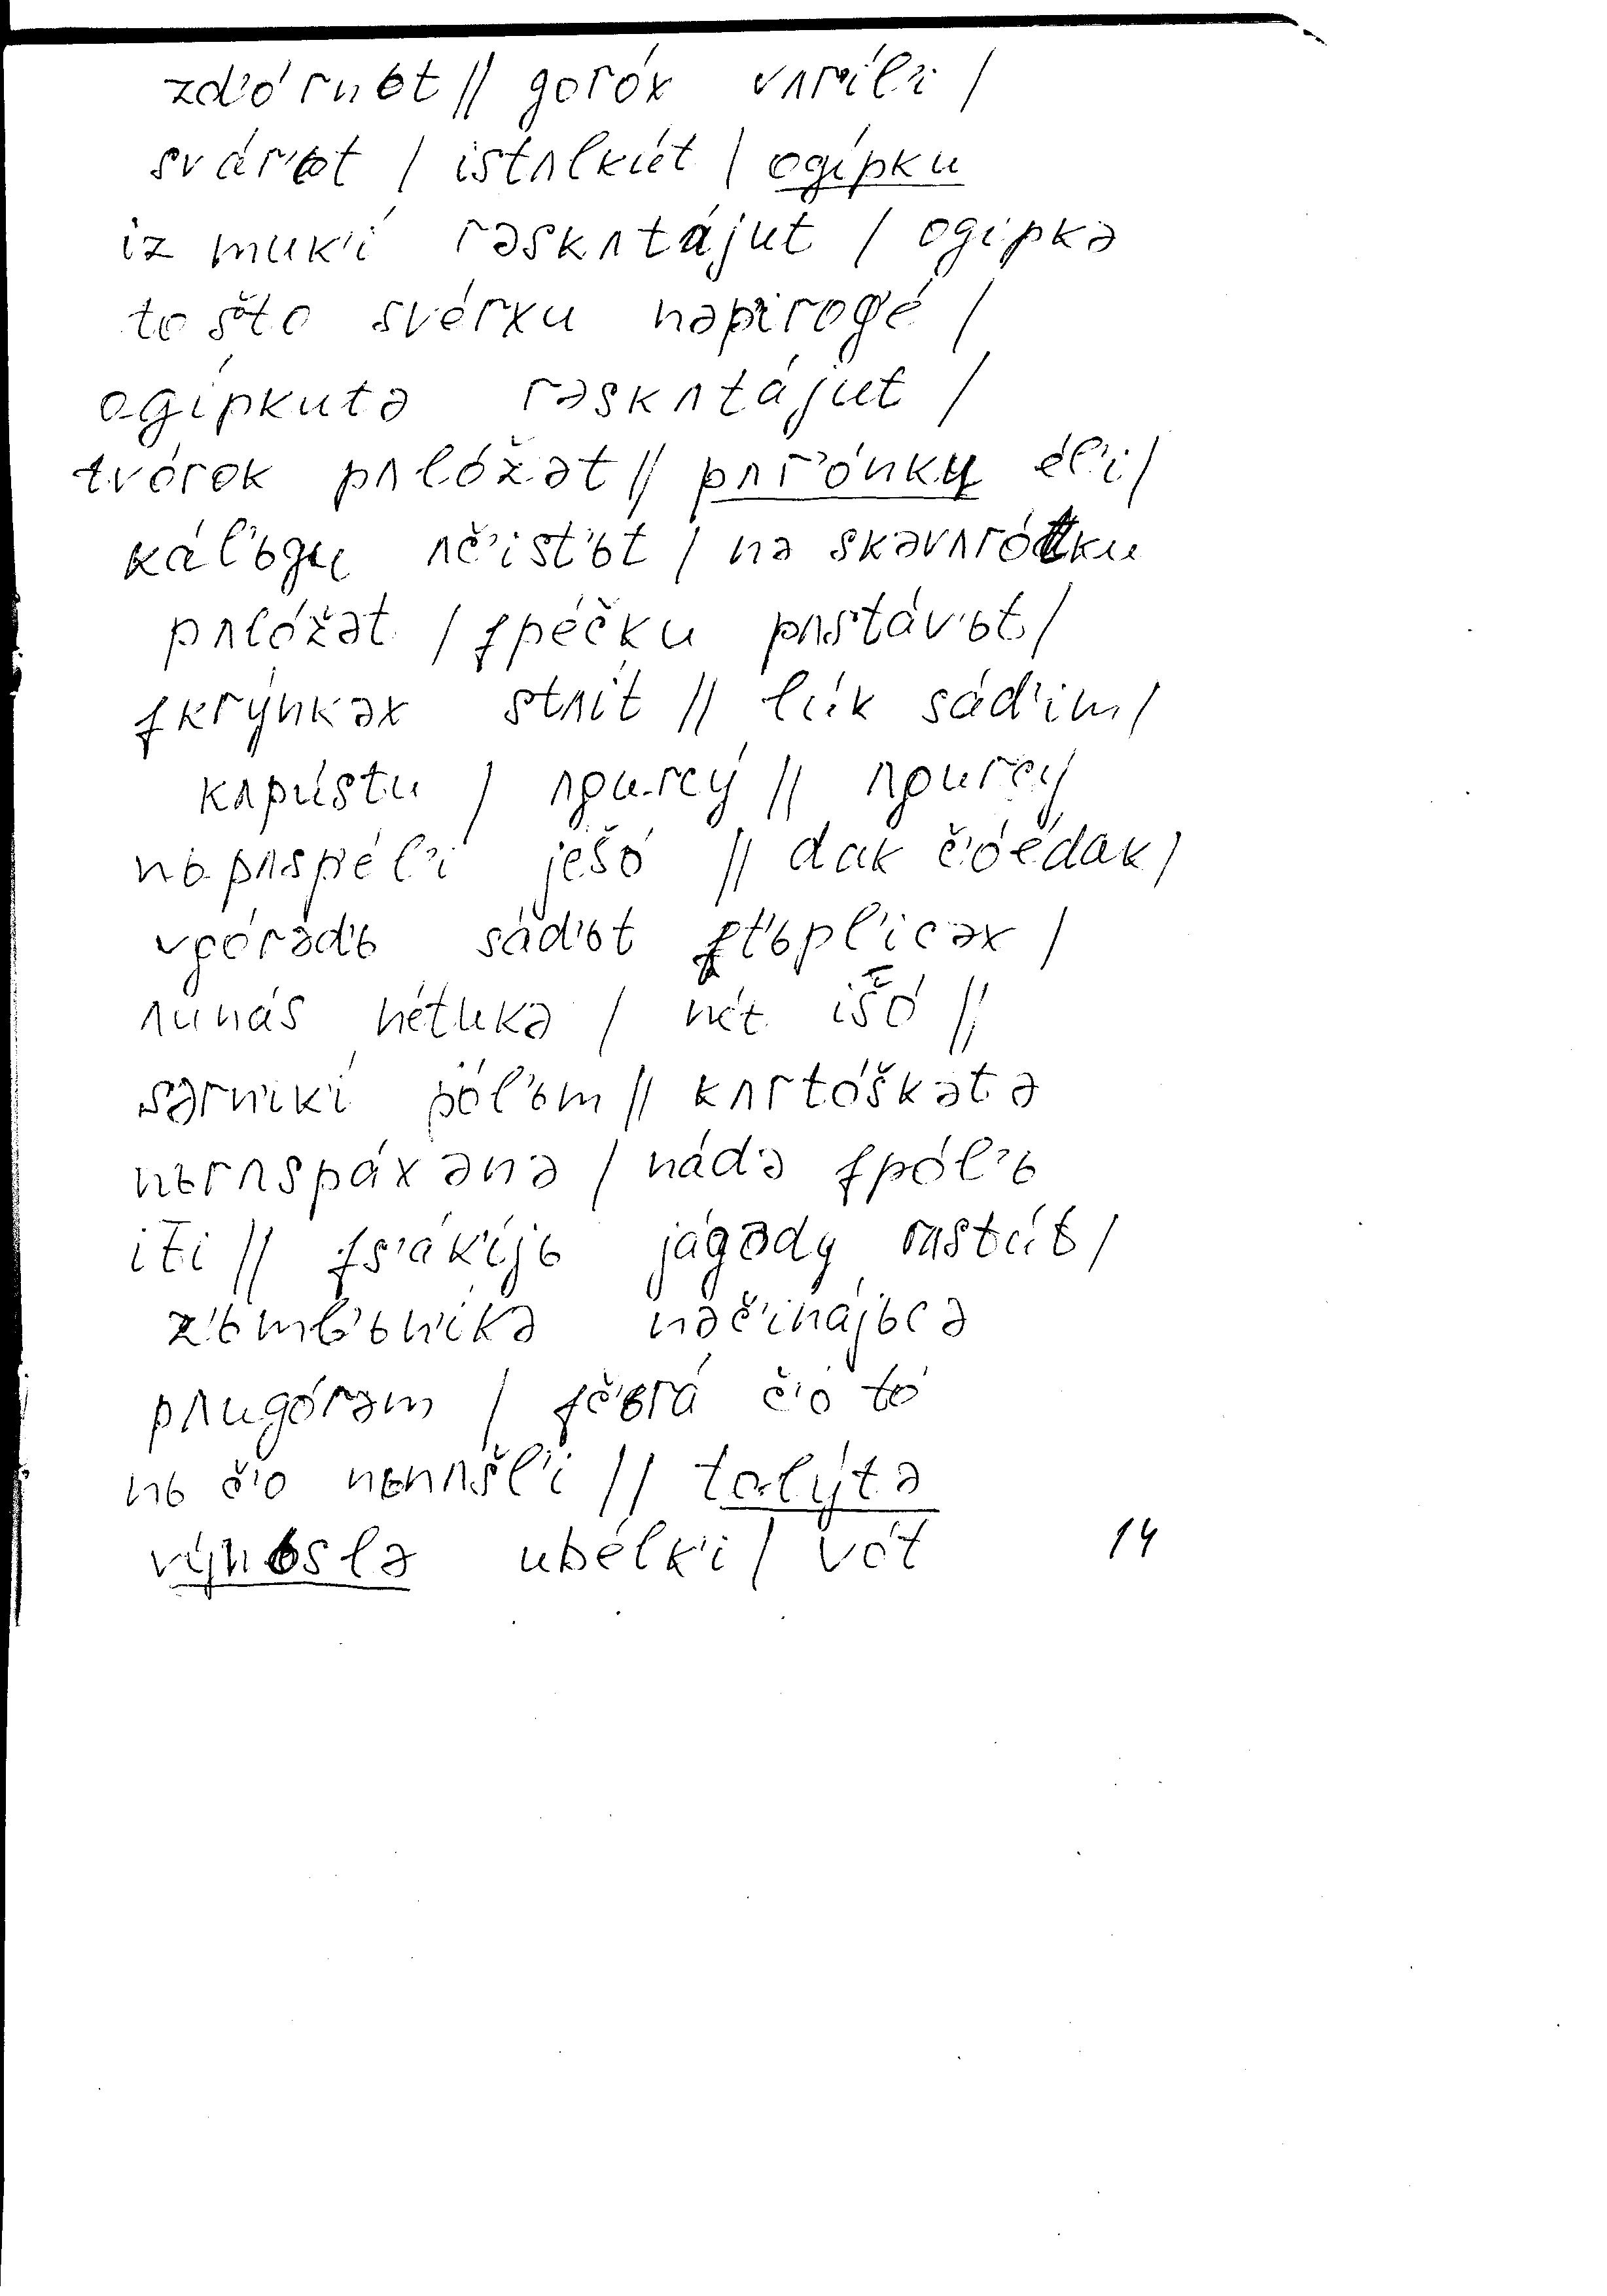 zd'órnьt // goróx vʌríl'i /
svár'ьt / istʌlkút / ogípku
iz muk'í rəskʌtájut / ogípkə
to što svérxu nəpirog'é /
ogípkutə rəskʌtájut /
tvórok pʌlóžət // pʌr'ónku él'i /
kál'ьgu ʌč'íst'ьt / nə skəvʌródku
pʌlóžət / fpéčku pʌstáv'ьt /
fkrýnkəx stʌít // lúk sád'im /
kʌpústu / ʌgurcý // ʌgurcý
nьpʌspél'i ješó // dak č'óédak /
vgórəd'ь sád'ьt ft'ьpl'icəx /
ʌunás nétukə / nét išó //
sərn'ikí pól'ьm // kʌrtóškətə
nьrʌspáxənə / nádə fpól'ь
ití // fs'ák'ijь jágody rʌstút /
z'ьml'ьn'íkə nəč'inájьcə
pʌugórəm / fč'ьrá č'ó tó
nь č'o nьnʌšl'í // talýtə
výnьslə ubélk'i / vót 14